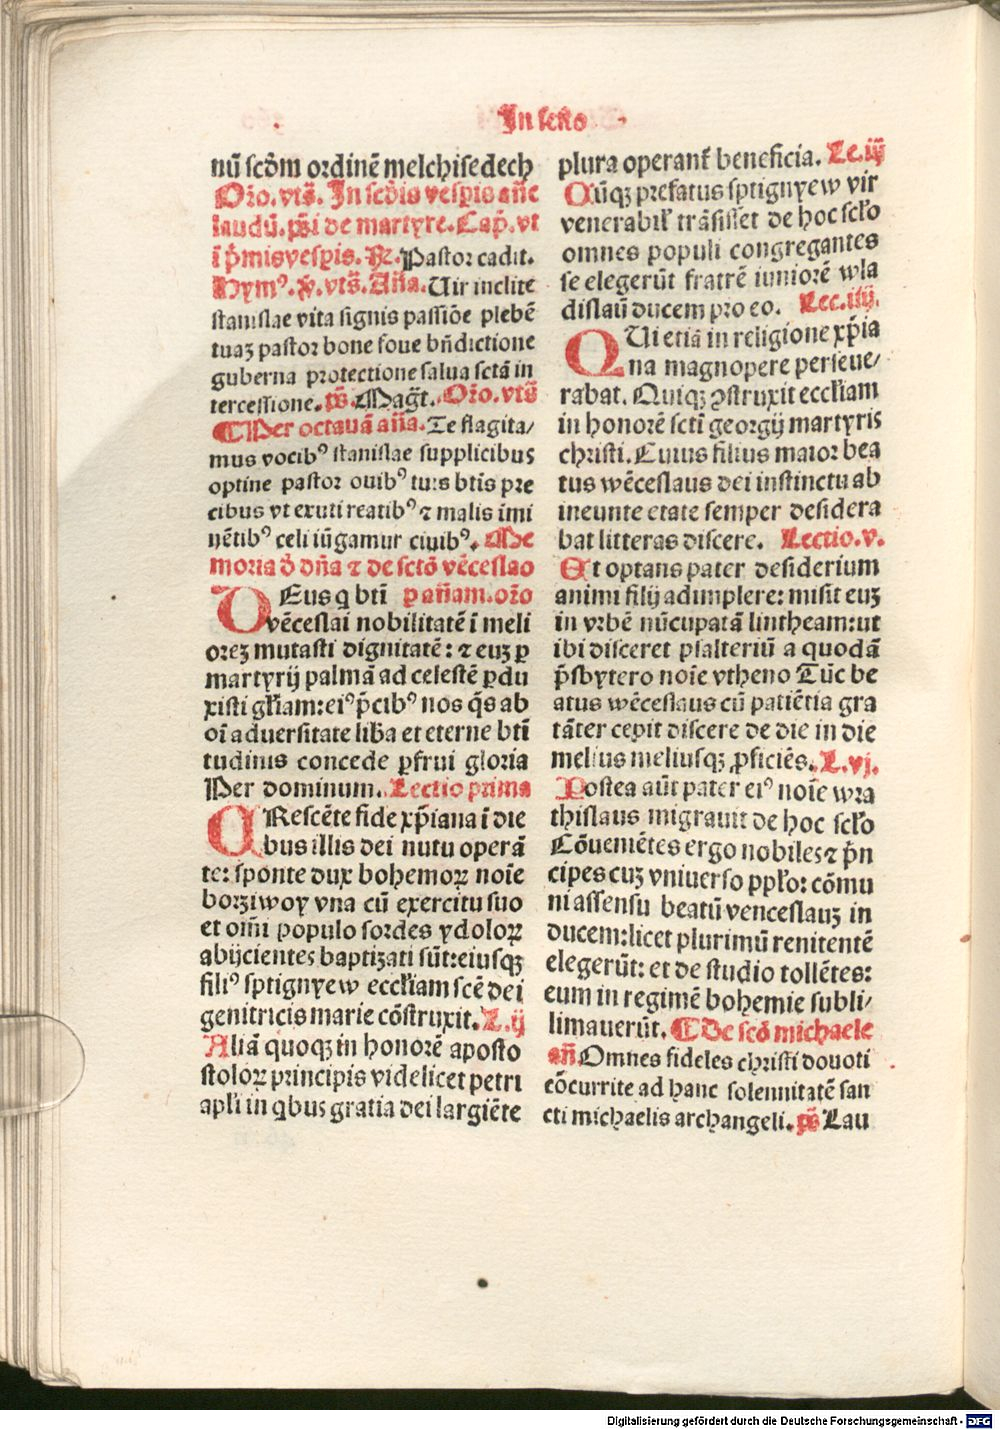 In festo
nū scd̄m ordinē melchisedech
Or̄o. vts̄. In sed̄is vesp̄is an̄e
laudū. ps̄i de martyre. Cap̄. vt
ī p̄mis vesp̄is. R̄. Pastor cadit.
Hymꝰ. v̄. vts̄. An̄a. Uir inclite
stanislae vita signis passiōe plebē
tuaꝫ pastor bone foue bn̄dictione
guberna protectione salua sctā in
tercessione. ps̄. Maḡt. Or̄o. vts̄
¶ Per octauā an̄a. Te flagita/
mus vocibꝰ stanislae supplicibus
optine pastor ouibꝰ tuis btīs pre
cibus vt exuti reatibꝰ ⁊ malis īmi
nētibꝰ celi iūgamur ciuibꝰ. Me
moria d̄ dn̄a ⁊ de sctō vēceslao
DEus q btī p an̄am. or̄o
vēceslai nobilitatē ī meli
oreꝫ mutasti dignitatē: ⁊ euꝫ ꝑ
martyrij palmā ad celestē ꝑdu
xisti gl̄iam: eiꝰ p̄cibꝰ nos q̄s ab
oī aduersitate lib̄a et eterne btī
tudinis concede ꝑfrui gloria
Per dominum. Lectio prima
CRescēte fide xp̄iana ī die
bus illis dei nutu operā
te: sponte dux bohemoꝝ noīe
borziwoy vna cū exercitu suo
et oīm̄ populo sordes ydoloꝝ
abijcientes baptizati sūt: eiusqꝫ
filiꝰ sptignyew eccl̄iam scē dei
genitricis marie cōstruxit. L. ij
Aliā quoqꝫ in honorē aposto
stoloꝝ principis videlicet petri
apl̄i in qbus gratia dei largiēte
plura operant̄ beneficia. Le. iij
Cūqꝫ prefatus sptignyew vir
venerabil̄ trāsisset de hoc scl̄o
omnes populi congregantes
se elegerūt fratrē iuniorē wla
dislaū ducem pro eo. Lec. iiij.
QUi etiā in religione xp̄ia
na magnopere perseue/
rabat. Quiqꝫ ꝯstruxit eccl̄iam
in honorē sctī georgij martyris
christi. Cuius filius maior bea
tus wēceslaus dei instinctu ab
ineunte etate semper desidera
bat litteras discere. Lectio. v.
Et optans pater desiderium
animi filij adimplere: misit euꝫ
in vrbē nūcupatā lintheam: ut
ibi disceret psalteriū a quodā
p̄sbytero noīe vtheno Tūc be
atus wēceslaus cū patiētia gra
tāter cepit discere de die in die
melius meliusqꝫ ꝓficiēs. L. vj.
Postea aūt pater eiꝰ noīe wra
thislaus migrauit de hoc scl̄o
Cōuemētes ergo nobiles ⁊ p̄n
cipes cuꝫ vniuerso ppl̄o: cōmu
ni assensu beatū venceslauꝫ in
ducem: licet plurimū renitentē
elegerūt: et de studio tollētes:
eum in regimē bohemie subli/
limauerūt. ¶ De scō michaele
an̄ Omnes fideles christi douoti
cōcurrite ad hanc solennitatē san
cti michaelis archangeli. ps̄ Lau
Digitalisierung gefördert durch die Deutsche Forschungsgemeinschaft - DFG